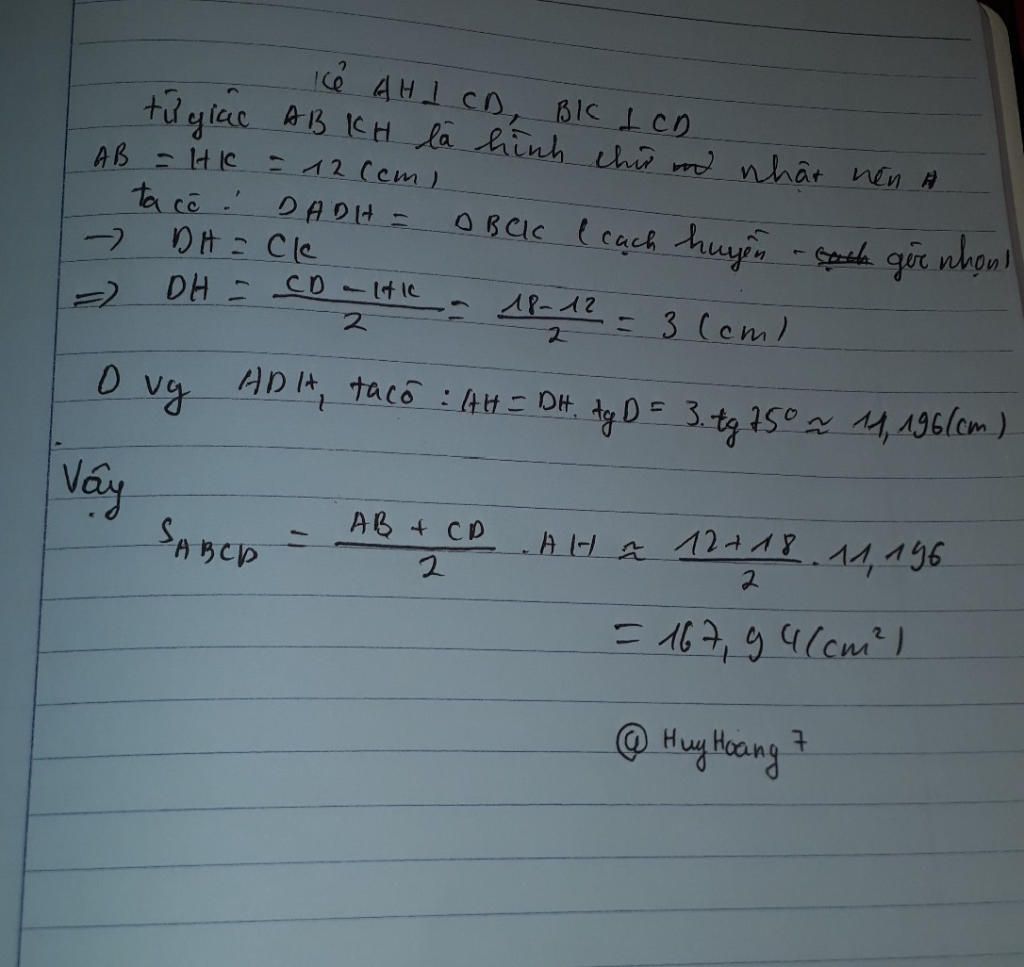 Kẻ AH ⊥ CD, BK ⊥ CD
tứ giác ABKH là hình chữ nhật nên A
AB = HK = 12 (cm)
ta có : ΔADH = ΔBCK (cạch huyền - góc nhọn)
→ DH = CK
=> DH = (CD - HK)/2 = (18 - 12)/2 = 3 (cm)
Δ vg ADH, ta có : AH = DH. tgD = 3. tg 75° ≈ 11,196 (cm)
Vậy
S_ABCD = (AB + CD)/2 . AH ≈ (12 + 18)/2 . 11,196
= 167,94 (cm²)
@ HuyHoang 7